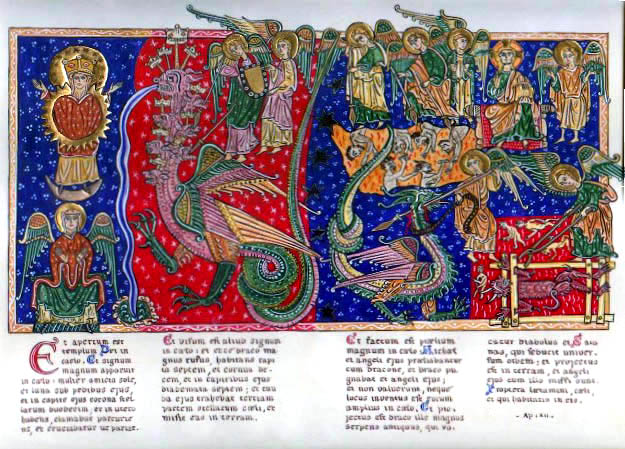 Et apertum est
templum Dei in
caelo: Et signum
magnum apparuit
in caelo: mulier amicta sole,
et luna sub pedibus ejus,
et in capite ejus corona stel
larum duodecim, et in utero
habens, clamabat parturie
ns, et cruciabatur ut pariat.
Et visum est aliud signum
in caelo: et ecce draco ma
gnus rufus, habens capi
ta septem, et cornua de
cem, et in capitibus ejus
diademata septem; et cau
da ejus trahebat tertiam
partem stellarum caeli, et
misit eas in terram.
Et factum est praelium
magnum in caelo Michael
et angeli ejus praeliabantur
cum dracone, et draco pu
gnabat et angeli ejus;
et non valuerunt, neque
locus inventus est eorum
amplius in caelo. Et pro
jectus est draco ille magnus
serpens antiquus, qui vo
catur diabolus et Sata
nas, qui seducit univer
sum orbem; et projectus
est in terram, et angeli
ejus cum illo missi sunt.
Propterea laetamini, caeli,
et qui habitatis in eis.
- Ap.XII. -